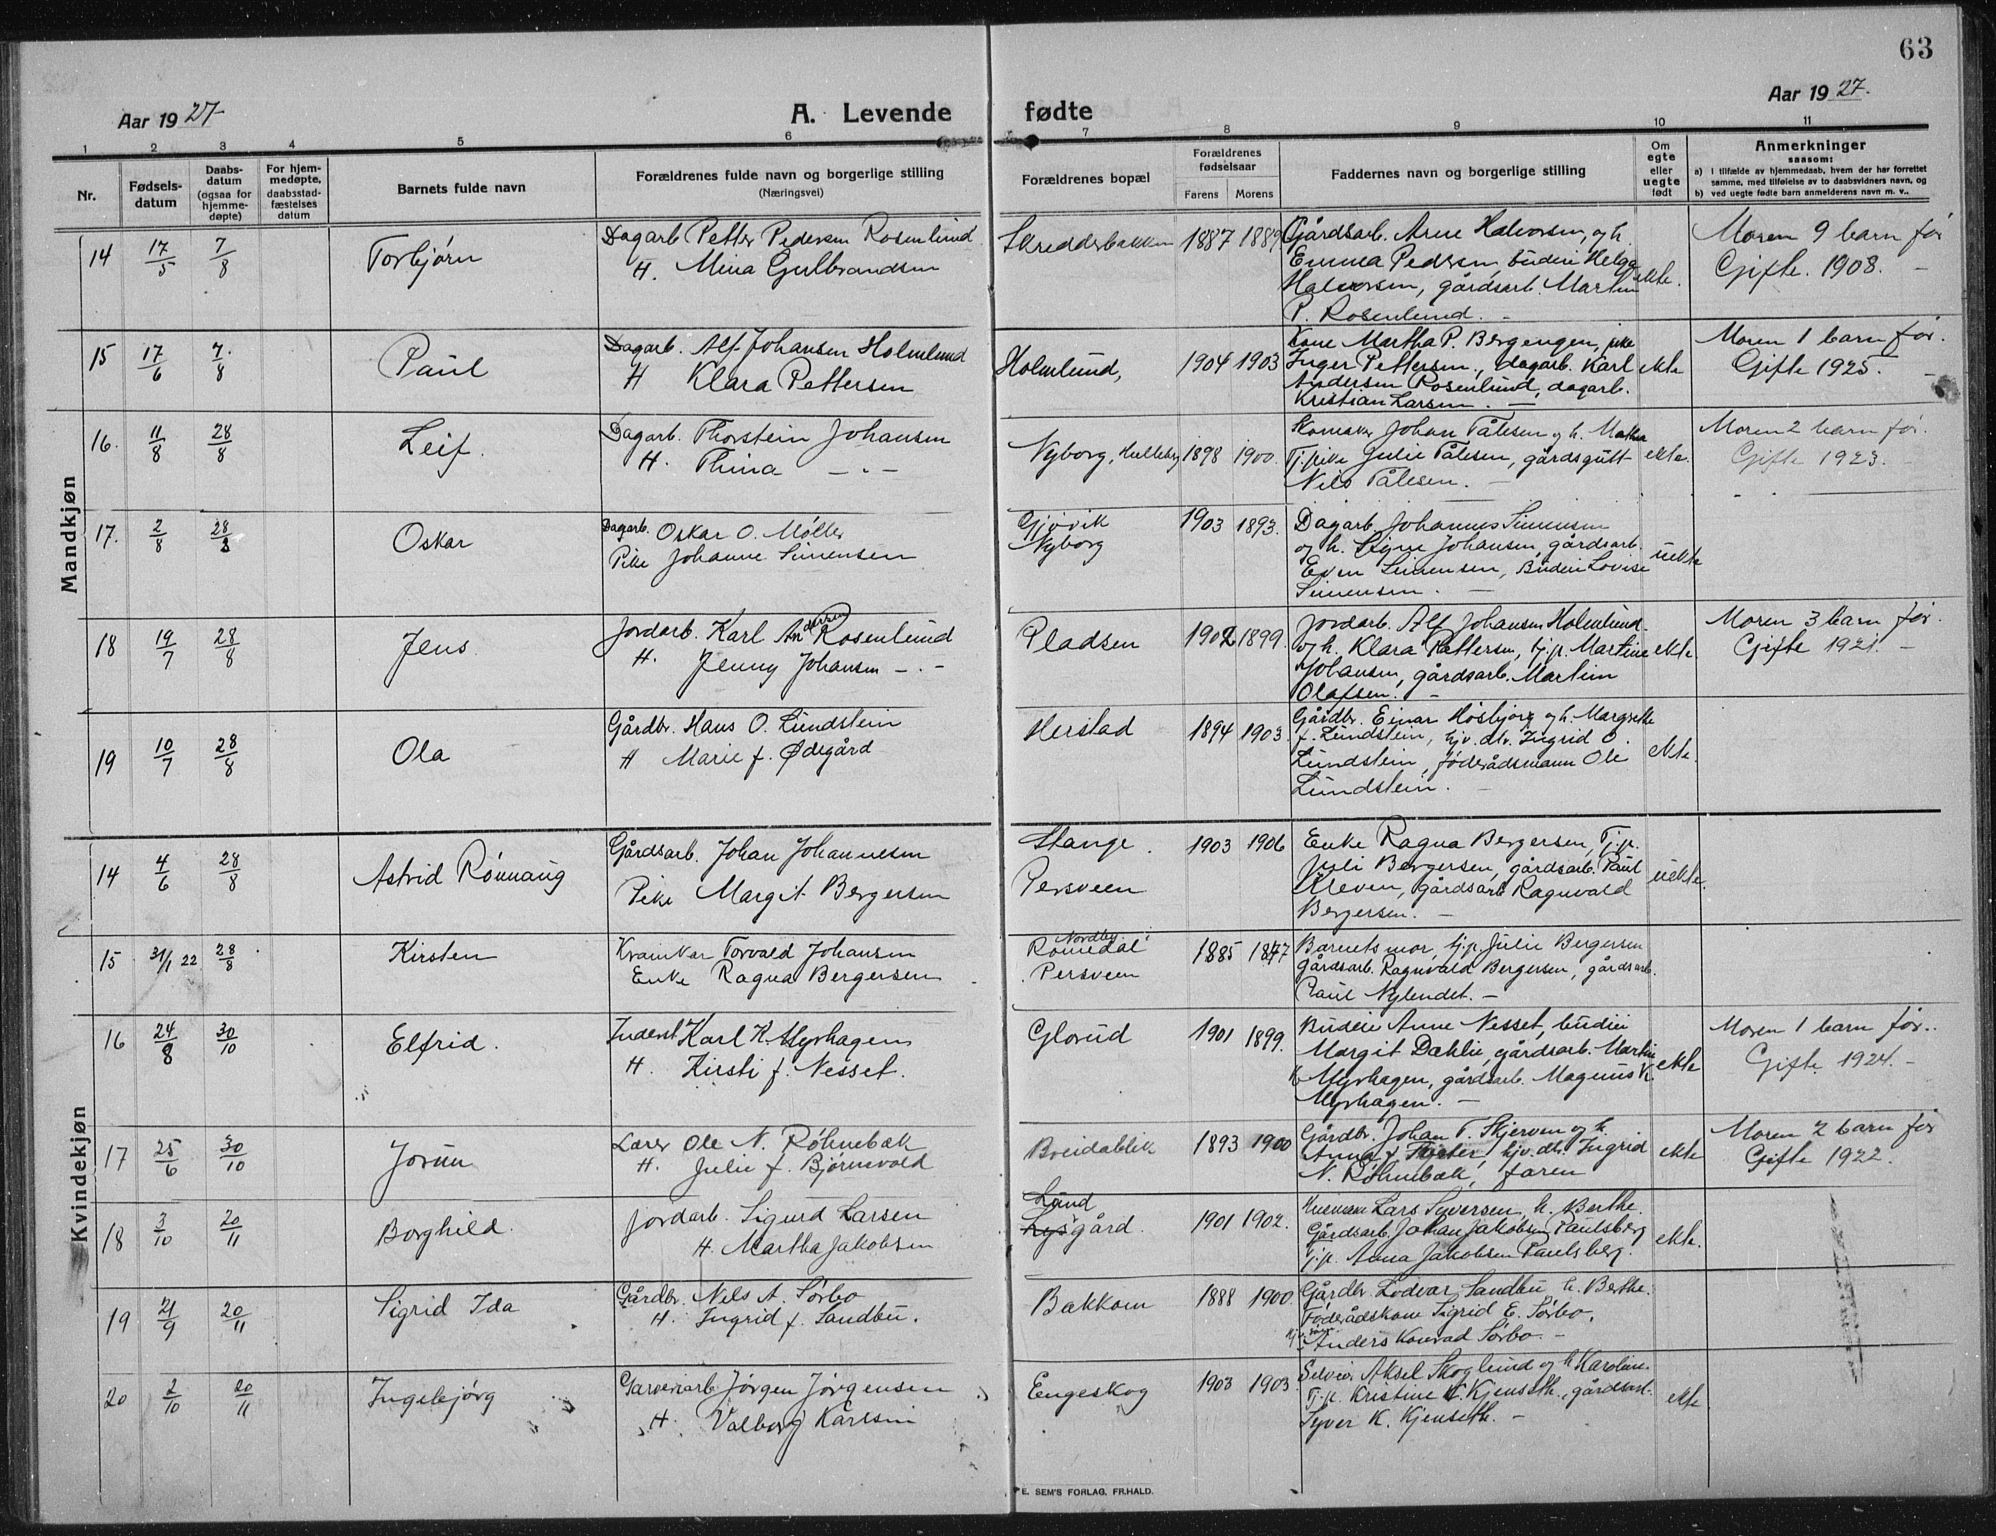 63
Aar 1927.
A. Levende fødte
Aar 1927.
1 2 3 4 5 6 7 8 9 10 11
Nr.
Fødsels-
datum
Daabs-
datum
(ogsaa for
hjemme-
døpte)
For hjem-
medøpte,
daabsstad-
fæstelses
datum
Barnets fulde navn
Forældrenes fulde navn og borgerlige stilling
(Næringsvei)
Forældrenes bopæl
Forældrenes
fødselsaar
Farens Morens
Faddernes navn og borgerlige stilling
Om
egte
eller
uegte
født
Anmerkninger
saasom:
a) i tilfælde av hjemmedaab, hvem der har forrettet
samme, med tilføielse av to daabsvidners navn, og
b) ved uegte fødte barn anmelderens navn m. v..
Mandkjøn
14 17/5 7/8 Torbjørn
Dagarb. Petter Pedersen Rosenlund
H. Mina Gulbrandsen
Skredderbakken 1887 1889
Gårdsarb. Arne Halvorsen, og h.
Emma Pedersen, budeie Helga
Halvorsen, gårdsarb. Martin
P. Rosenlund. –
ekte.
Moren 9 barn før
Gifte. 1908. –
15 17/6 7/8 Paul
Dagarb. Alf Johansen Holmlund
H Klara Pettersen
Holmlund, 1904 1903
Kone Martha P. Bergengen, pike
Inger Pettersen, dagarb. Karl
Andersen Rosenlund, dagarb.
Kristian Larsen. –
ekte
Moren 1 barn før.
Gifte 1925. –
16. 11/8 28/8 Leif.
Dagarb. Thorstein Johansen
H. Thina – „ –
Nyborg, 1898 1900.
Johan Pålesen og h. Mathea
Tj.pike Julie Pålesen, gårdsgutt
Nils Pålesen. –
ekte.
Moren 2 barn før.
Gifte 1923. –
17. 2/8 28/8 Oskar
Dagarb. Oskar O. Møller
Pike Johanne Simensen
Gjøvik
Nyborg
1903 1893.
Dagarb. Johannes Simensen
og h. Signe Johansen, gårdsarb.
Even Simensen, Budeie Lovise
Simensen. –
uekte
18 19/7 28/8 Jens
Jordarb. Karl Andersen Rosenlund
H. Jenny Johansen – „ –
Pladsen 1902 1899.
Jordarb. Alf Johansen Holmlund
og h. Klara Pettersen, tj.p. Martine
Johansen, gårdsarb. Martin
Olafsen. –
ekte.
Moren 3 barn før.
Gifte 1921. –
19 10/7 28/8 Ola
Gårdbr. Hans O. Lundstein
H Marie f. Ødegård
Herstad 1894 1903.
Gårdbr. Einar Høsbjorg og h. Margrethe
f. Lundstein, hjv. dtr. Ingrid O.
Lundstein, føderådsmann Ole
Lundstein. –
ekte.
Kvindekjøn
14 4/6 28/8 Astrid Rønnaug
Gårdsarb. Johan Johannesen
Pike Margit Bergersen
Stange.
Persveen
1903 1906
Enke Ragna Bergersen, Tj.p.
Juli Bergersen, gårdsarb. Paul
Kleven, gårdsarb. Ragnvald
Bergersen. –
uekte.
15 31/1 22 28/8 Kirsten
Torvald Johansen
Enke Ragna Bergersen
Nordby
Romedal
Persveen
1885 1877
Barnets mor, tj.p. Julie Bergersen
gårdsarb. Ragnvald Bergersen, gårdsarb.
Paul Nylendet. –
16 24/8 30/10 Elfrid.
Karl K. Myrhagen
H. Kirsti f. Nesset.
Glorud 1901 1899.
Budeie Anne Nesset, budeie
Margit Dæhlie, gårdsarb. Martin
K Myrhagen, gårdsarb. Magnus K.
Myrhagen. –
ekte
Moren 1 barn før..
Gifte 1924. –
17 25/6 30/10 Jorun
Lærer Ole N. Røhnebæk
H. Julie f. Bjørnevold
Breidablik 1893 1900
Gårdbr. Johan T. Skjerven og h.
Anna f. , hjv. dtr. Ingrid
N. Røhnebæk, faren
ekte
Moren 2 barn før
Gifte 1922.
18 3/10 20/11 Borghild.
Jordarb. Sigurd Larsen
H. Martha Jakobsen
Lund
Lysgård. 1901 1902.
Lars Syversen, h. Berthe.
Gårdsarb. Johan Jakobsen Paulsberg
tj.p. Anna Jakobsen Paulsberg.
ekte.
19 21/9 20/11 Sigrid Ida
Gårdbr. Nils A. Sørbo
H. Ingrid f. Sandbu.
Bakkom 1888 1900.
Gårdbr. Lodvar Sandbu h. Berthe.
Føderådskone Sigrid E. Sørbo.
Anders Konrad Sørbo. –
20 2/10 20/11 Ingebjørg
Garveriarb. Jørgen Jørgensen
H. Valborg Karlsen
Engeskog 1903 1903
Aksel Skoglund og h. Karoline.
Tj.p. Kristine K. Kjenseth, gårdsarb.
Syver K. Kjenseth. –
ekte
E. SEM'S FORLAG, FR.HALD.